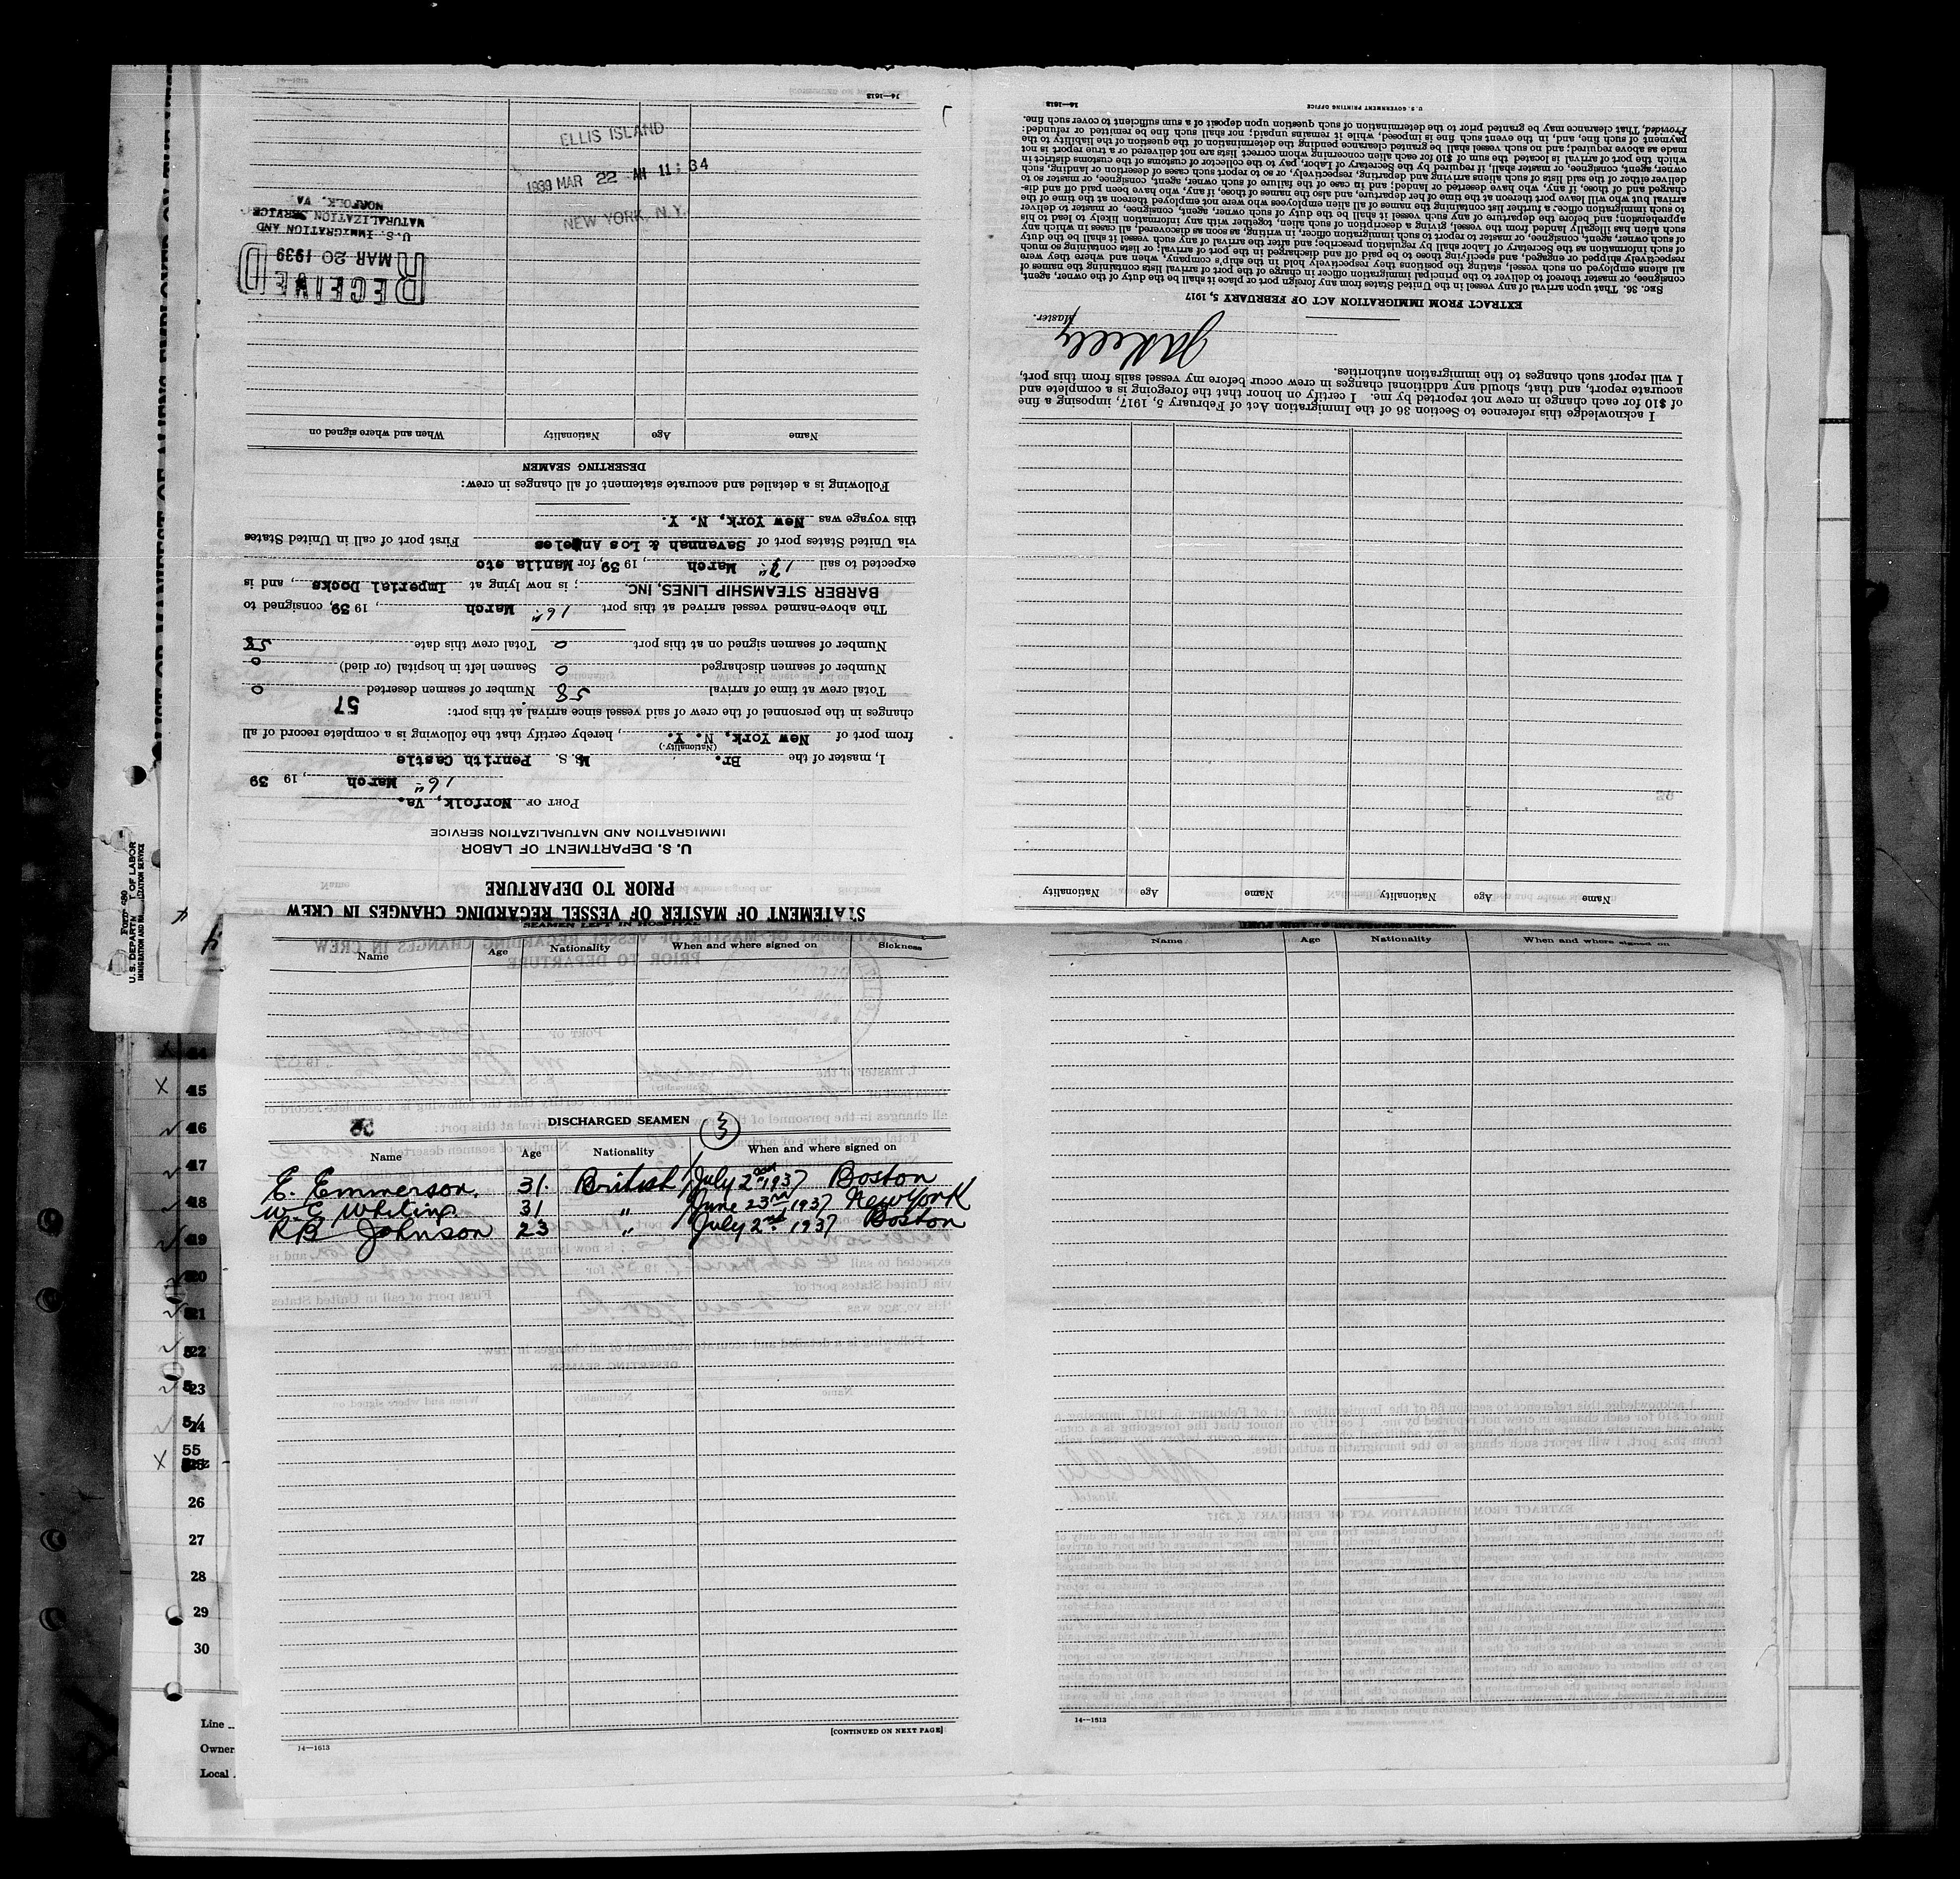 STATEMENT OF MASTER OF VESSEL REGARDING CHANGES IN CREW
PRIOR TO DEPARTURE
U. S. DEPARTMENT OF LABOR
IMMIGRATION AND NATURALIZATION SERVICE
PORT OF Norfolk, Va.
16" March, 19 39
I, master of the Br. M. S. Penrith Castle
(Nationality.)
from port of New York, N. Y., hereby certify that the following is a complete record of all
changes in the personnel of the crew of said vessel since arrival at this port:
57
Total crew at time of arrival 58 Number of seamen deserted 0
Number of seamen discharged 0 Seamen left in hospital (or died) 0
Number of seamen signed on at this port 0 Total crew this date 58
The above-named vessel arrived at this port 16" March, 19 39, consigned to
BARBER STEAMSHIP LINES, INC. ; is now lying at Imperial Docks, and is
expected to sail March, 19 39, for Manila etc
via United States port of Savannah & Los Angeles First port of call in United States
this voyage was New York, N. Y.
Following is a detailed and accurate statement of all changes in crew:
DESERTING SEAMEN
Name Age Nationality When and where signed on
RECEIVED
MAR 20 1939
U. S. IMMIGRATION AND
NATURALIZATION SERVICE
NORFOLK, VA.
ELLIS ISLAND
1939 MAR 22 AM 11:34
NEW YORK, N.Y.
14—1613
Name Age Nationality Name Age Nationality
I acknowledge this reference to Section 36 of the Immigration Act of February 5, 1917, imposing a fine
of $10 for each change in crew not reported by me. I certify on honor that the foregoing is a complete and
accurate report, and that, should any additional changes in crew occur before my vessel sails from this port,
I will report such changes to the immigration authorities.
Master.
EXTRACT FROM IMMIGRATION ACT OF FEBRUARY 5, 1917
SEC. 36. That upon arrival of any vessel in the United States from any foreign port or place it shall be the duty of the owner, agent,
consignee, or master thereof to deliver to the principal immigration officer in charge of the port of arrival lists containing the names of
all aliens employed on such vessel, stating the positions they respectively hold in the ship's company, when and where they were
respectively shipped or engaged, and specifying those to be paid off and discharged in the port of arrival; or lists containing so much
of such information as the Secretary of Labor shall by regulation prescribe; and after the arrival of any such vessel it shall be the duty
of such owner, agent, consignee, or master to report to such immigration officer, in writing, as soon as discovered, all cases in which any
such alien has illegally landed from the vessel, giving a description of such alien, together with any information likely to lead to his
apprehension; and before the departure of any such vessel it shall be the duty of such owner, agent, consignee, or master to deliver
to such immigration office: a further list containing the names of all alien employees who were not employed thereon at the time of the
arrival but who will leave port thereon at the time of her departure, and also the names of those, if any, who have been paid off and dis-
charged and of those, if any, who have deserted or landed; and in case of the failure of such owner, agent, consignee, or master so to
deliver either of the said lists of such aliens arriving and departing, respectively, or so to report such cases of desertion or landing, such
owner, agent, consignee, or master shall, if required by the Secretary of Labor, pay to the collector of customs of the customs district in
which the port of arrival is located the sum of $10 for each alien concerning whom correct lists are not delivered or a true report is not
made as above required; and no such vessel shall be granted clearance pending the determination of the question of the liability to the
payment of such fine, and, in the event such fine is imposed, while it remains unpaid; nor shall such fine be remitted or refunded:
Provided, That clearance may be granted prior to the determination of such question upon deposit of a sum sufficient to cover such fine.
U. S. GOVERNMENT PRINTING OFFICE 14—1613
Form 680
IMMIGRATION AND
SEAMEN LEFT IN HOSPITAL
Name Age Nationality When and where signed on Sickness
DISCHARGED SEAMEN
3
Name Age Nationality When and where signed on
E. Emmerson. 31. British July 2nd 1937 Boston
W E Whiting 31 " June 23rd 1937 New York
RB Johnson 23 " July 2nd 1937 Boston
[CONTINUED ON NEXT PAGE]
14—1613
Name Age Nationality When and where signed on
14—1613
45
46
47
48
49
55
26
27
28
29
30
Line
Owner
Local